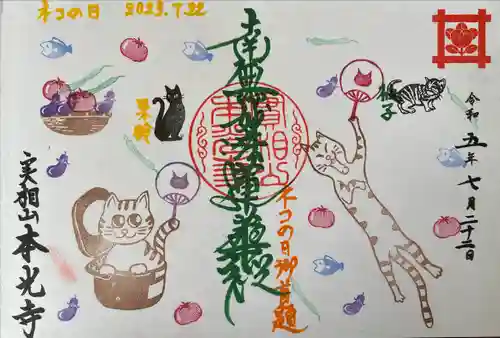 ネコの日 2023.7.22
南無妙法蓮華経
ネコの日御首題
令和五年七月二十二日
実相山本光寺